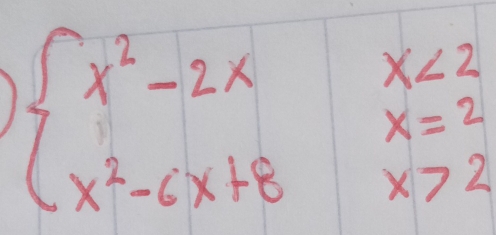 x² - 2x x < 2
x = 2
x² - 6x + 8 x > 2